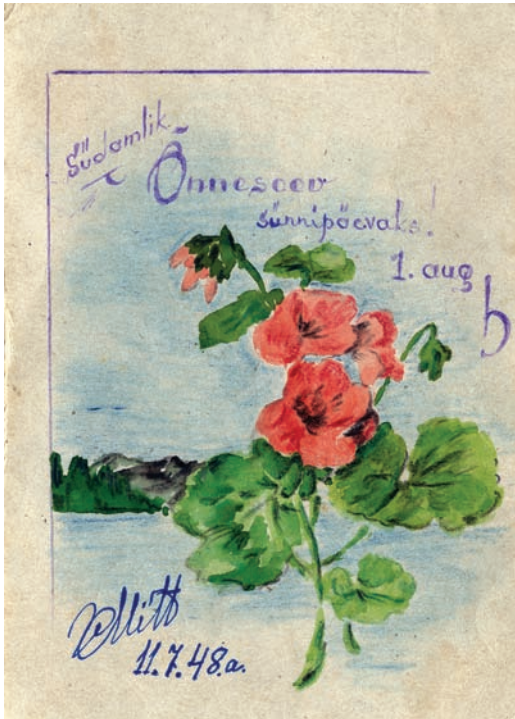 Südamlik
Õnnesoov
sünnipäevaks!
1. aug
Mitt
11.7.48.a.